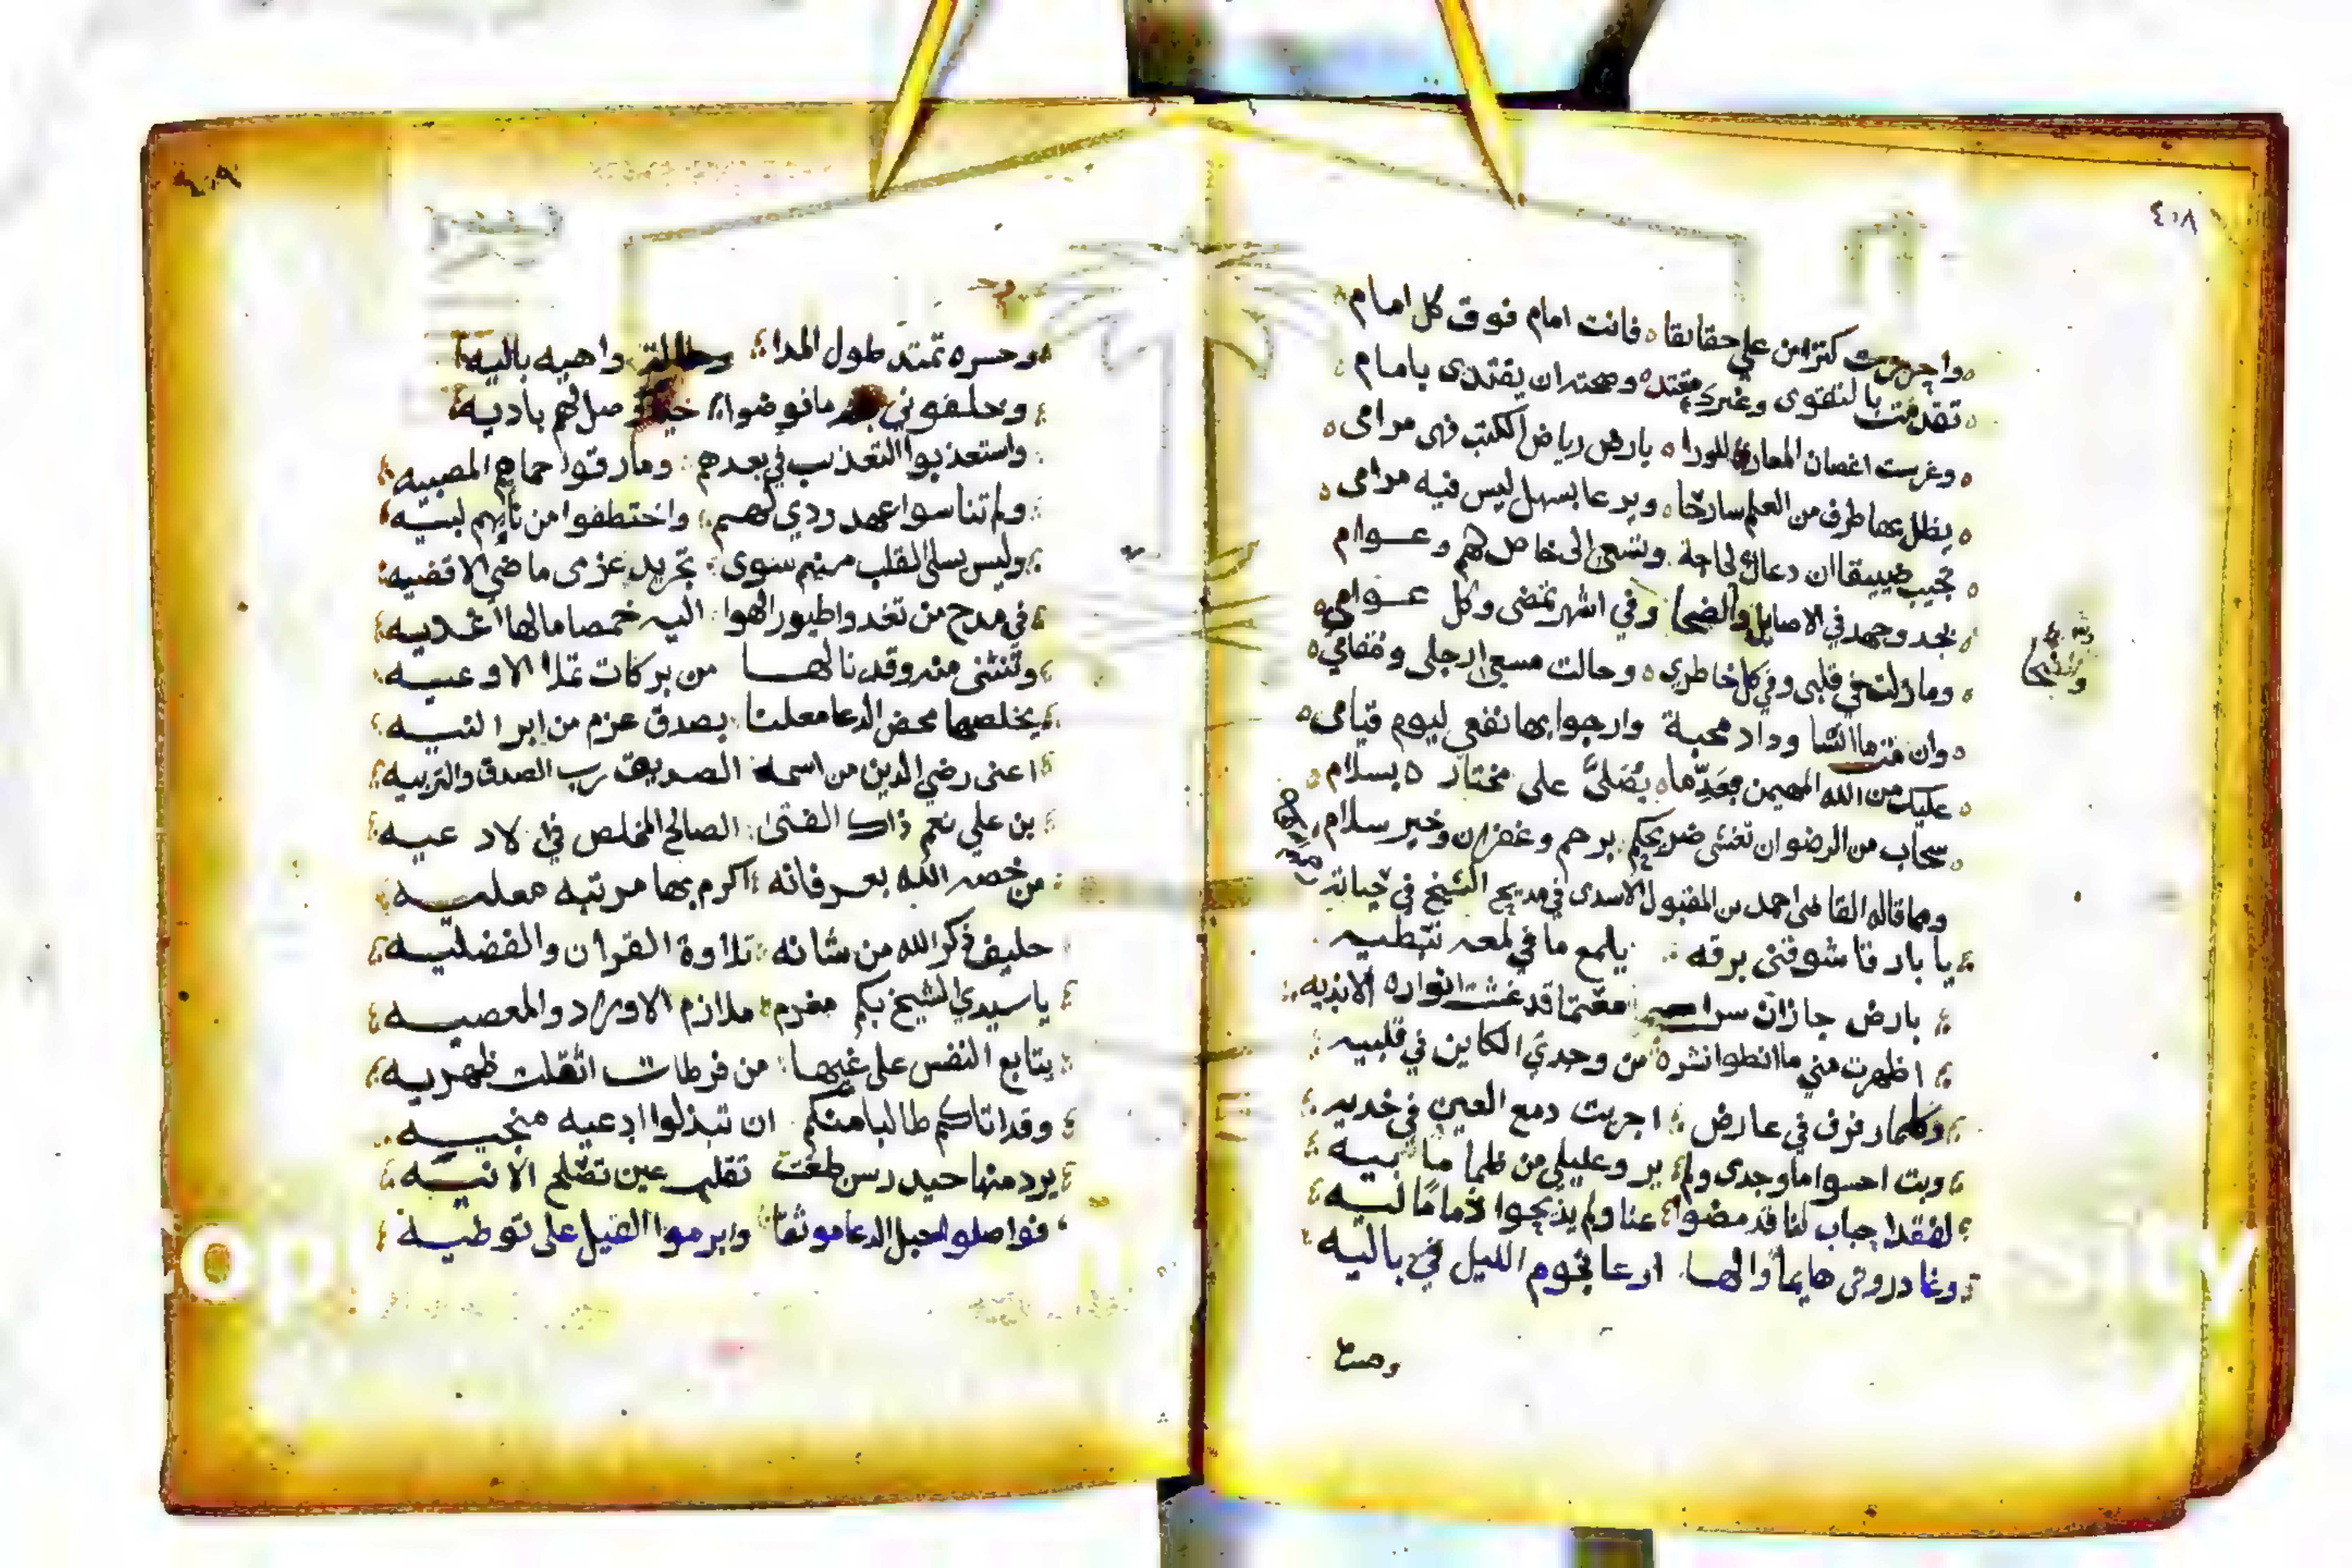 ٤٠٨
واحرزت كنزا من علي حقايقا فانت امام فوق كل امام
تقدمت بالتقوى وغيرك مقتد وصحته ان يقتدى بامام
وغرست اغصان المعارف للورا بارض رياض الكتب فهى مرامى
يظل بها طرف من العلم سارحا ويرعا بسهل ليس فيه مرامى
تجيب ضييقا ان دعاك لحاجة وتسعى الى خاصلهم وعوام
بجد وجهد في الاصايل والضحا وفي اشهر تمضى وكل عوامى
وما زلت في قلبى وفي كل خاطري وحالت مسعى ارجلى ومقامي
وان فت ما انشا وداد محبة وارجوا بها نفعى ليوم قيامى
عليك من الله المهيمن بعد ما يصلى على مختاره بسلام
سحاب من الرضوان تغشى ضريحكم برحم وغفران وخير سلام
ومما قاله القاضى احمد بن المقبول الاسدى في مديح الشيخ في حياته
يا بارقا شوقنى برقه يلمع ما في لمعه
بارض جازان سرا معتما قد غشت انواره الانديه
اظهرت مني ما انطوا نشره من وجدي الكاين في قلبيه
وكلما رفرف في عارض اجريت دمع العين في خديه
وبت احسوا ما وجدى ولم يرو غليلي من ظما ما بيه
لفقد احباب لنا قد مضوا عنا ولم يذبحوا ذماما ليه
وغادروني هايما والها ارعا نجوم الليل في باليه
وحسره تمتد طول المدا وحالة واهيه باليه
وخلفوني ما نوضوا صالهم باديه
واستعذبوا التعذيب في بعدهم وفارقوا حماهم المصبيه
ولم تناسوا عهد ردي لهم واختطفوا من نايهم لبيه
وليس يسلى القلب منهم سوى تجريد عزمى ماضى الاقضيه
في مدح من تغدوا طيور الهوا اليه خمصا مالها اغديه
وتنثنى منه وقد نالها من بركات تملا الاوعيه
يخلصها محض الدعا معلنا بصدق عزم من ابر النيه
اعنى رضي الدين من اسمه الصديق رب الصدق والتربيه
بن علي نعم ذاك الفتى الصالح المخلص في الادعيه
من خصه الله بعرفانه اكرم بها مرتبه معليه
حليف ذكر الله من شانه تلاوة القران والفضليه
يا سيدي الشيخ بكم مغرم ملازم الاوزار والمعصيه
يتابع النفس على غيها من فرطات اثقلت ظهريه
وقد اتاكم طالبا منكم ان تبذلوا ادعيه منجيه
يرد منها حيد رسن طغت تقلب عين تصلح الانيه
فواصلوا حبل الدعا موثقا وابرموا الفيل على توطيه